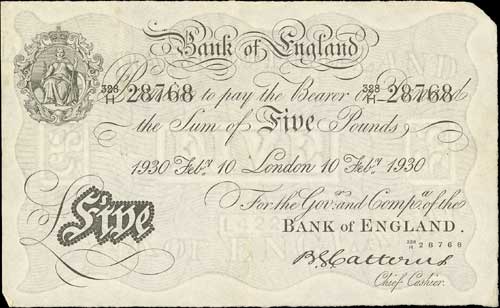 Bank of England
328/H 28768 328/H 28768
Promise to pay the Bearer on Demand
the Sum of Five Pounds
1930 Feby 10 London 10 Feby 1930
For the Govr and Compa of the
Five
BANK OF ENGLAND.
328/H 28768
B G Catterns
Chief Cashier.